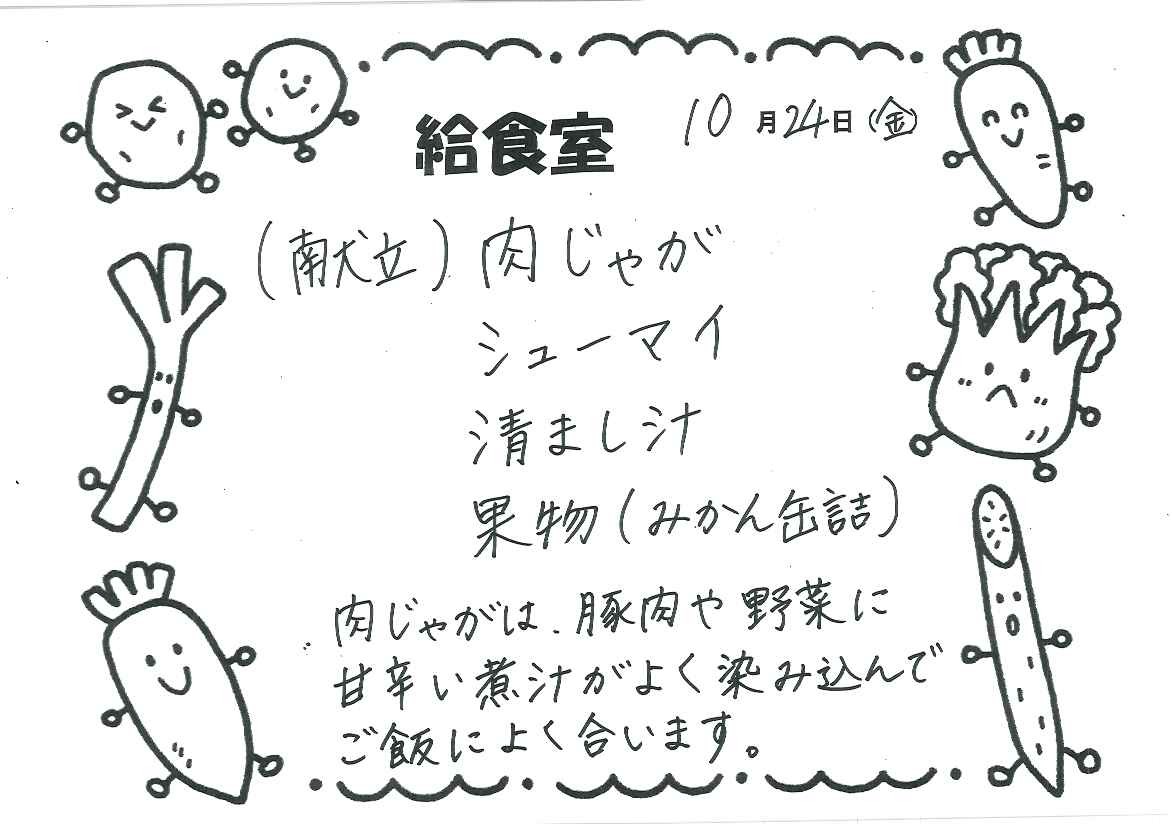 給食室 10月24日(金)
(献立)肉じゃが
シューマイ
清まし汁
果物(みかん缶詰)
肉じゃがは、豚肉や野菜に
甘辛い煮汁がよく染み込んで
ご飯によく合います。